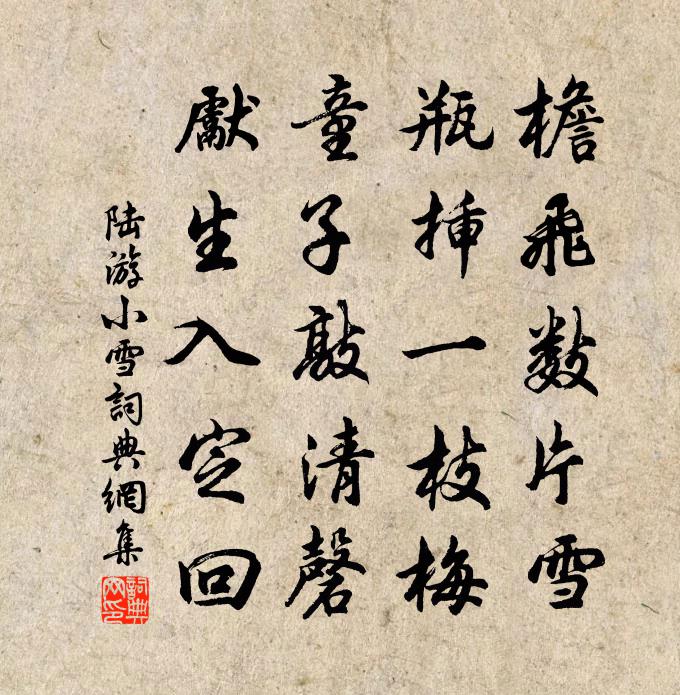 檐飛数片雪
瓶挿一枝梅
童子敲清磬
獻生入定回
陆游小雪詞典網集
詞典
网印